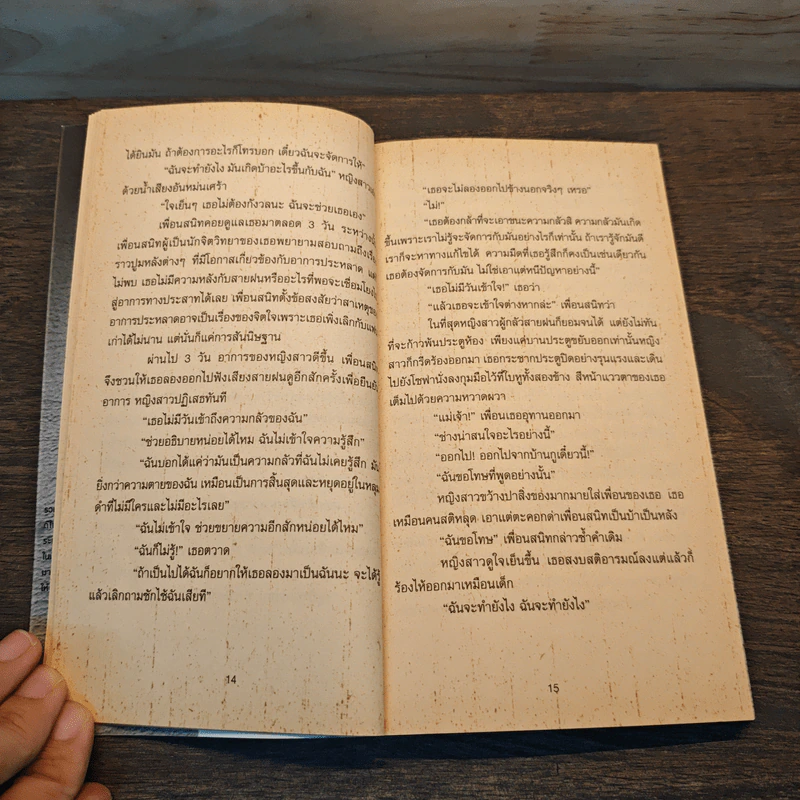 ได้ยินมัน ถ้าต้องการอะไรก็โทรบอก เดี๋ยวฉันจะจัดการให้"
"ฉันจะทำยังไง มันเกิดบ้าอะไรขึ้นกับฉัน" หญิงสาว
ด้วยน้ำเสียงอันหม่นเศร้า
"ใจเย็นๆ เธอไม่ต้องกังวลนะ ฉันจะช่วยเธอเอง"
เพื่อนสนิทคอยดูแลเธอมาตลอด 3 วัน ระหว่าง
เพื่อนสนิทผู้เป็นนักจิตวิทยาของเธอพยายามสอบถามถึงเรื่อง
ราวปูมหลังต่างๆ ที่มีโอกาสเกี่ยวข้องกับอาการประหลาด
ไม่พบ เธอไม่มีความหลังกับสายฝนหรืออะไรที่พอจะเชื่อมโยง
สู่อาการทางประสาทได้เลย เพื่อนสนิทตั้งข้อสงสัยว่าสาเหตุของ
อาการประหลาดอาจเป็นเรื่องของจิตใจเพราะเธอเพิ่งเลิกกับแฟน
เก่าได้ไม่นาน แต่นั่นก็แค่การสันนิษฐาน
ผ่านไป 3 วัน อาการของหญิงสาวดีขึ้น เพื่อนสนิท
จึงชวนให้เธอลองออกไปฟังเสียงสายฝนดูอีกสักครั้งเพื่อยืนยัน
อาการ หญิงสาวปฏิเสธทันที
"เธอไม่มีวันเข้าถึงความกลัวของฉัน"
"ช่วยอธิบายหน่อยได้ไหม ฉันไม่เข้าใจความรู้สึก"
"ฉันบอกได้แค่ว่ามันเป็นความกลัวที่ฉันไม่เคยรู้สึก มัน
ยิ่งกว่าความตายของฉัน เหมือนเป็นการสิ้นสุดและหยุดอยู่ในหลุม
ดำที่ไม่มีใครและไม่มีอะไรเลย"
"ฉันไม่เข้าใจ ช่วยขยายความอีกสักหน่อยได้ไหม"
"ฉันก็ไม่รู้!" เธอตวาด
"ถ้าเป็นไปได้ฉันก็อยากให้เธอลองมาเป็นฉันนะ จะได้รู้
แล้วเลิกถามซักไซ้ฉันเสียที"
14
"เธอจะไม่ลองออกไปข้างนอกจริงๆ เหรอ"
"ไม่!"
"เธอต้องกล้าที่จะเอาชนะความกลัวสิ ความกลัวมันเกิด
ขึ้นเพราะเราไม่รู้จะจัดการกับมันอย่างไรก็เท่านั้น ถ้าเรารู้จักมันดี
เราก็จะหาทางแก้ไขได้ ความมืดที่เธอรู้สึกก็คงเป็นเช่นเดียวกัน
เธอต้องจัดการกับมัน ไม่ใช่เอาแต่หนีปัญหาอย่างนี้"
"เธอไม่มีวันเข้าใจ!" เธอว่า
"แล้วเธอจะเข้าใจต่างหากล่ะ" เพื่อนสนิทว่า
ในที่สุดหญิงสาวผู้กลัวสายฝนก็ยอมจนได้ แต่ยังไม่ทัน
ที่จะก้าวพ้นประตูห้อง เพียงแค่บานประตูขยับออกเท่านั้นหญิง
สาวก็กรีดร้องออกมา เธอกระชากประตูปิดอย่างรุนแรงและเดิน
ไปยังโซฟานั่งลงกุมมือไว้ที่ใบหูทั้งสองข้าง สีหน้าแววตาของเธอ
เต็มไปด้วยความหวาดผวา
"แม่เจ้า!" เพื่อนเธออุทานออกมา
"ช่างน่าสนใจอะไรอย่างนี้"
"ออกไป! ออกไปจากบ้านกูเดี๋ยวนี้!"
"ฉันขอโทษที่พูดอย่างนั้น"
หญิงสาวขว้างปาสิ่งของมากมายใส่เพื่อนของเธอ เธอ
เหมือนคนสติหลุด เอาแต่ตะคอกด่าเพื่อนสนิทเป็นบ้าเป็นหลัง
"ฉันขอโทษ" เพื่อนสนิทกล่าวซ้ำคำเดิม
หญิงสาวดูใจเย็นขึ้น เธอสงบสติอารมณ์ลงแต่แล้วก็
ร้องไห้ออกมาเหมือนเด็ก
"ฉันจะทำยังไง ฉันจะทำยังไง"
15